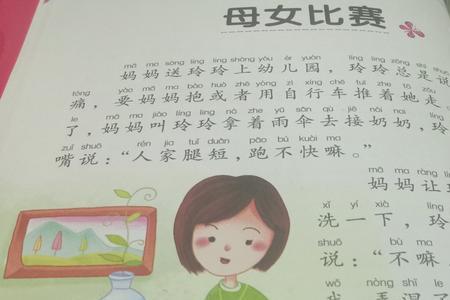 母女比赛
mā ma sòng líng líng shàng yòu ér yuán líng líng zǒng shì shuō
妈妈送玲玲上幼儿园，玲玲总是说
tòng yào mā ma bào huò zhě yòng zì xíng chē tuī zhe tā zǒu
痛，要妈妈抱或者用自行车推着她走
le mā ma jiào líng líng ná zhe yǔ sǎn qù jiē nǎi nai líng
了，妈妈叫玲玲拿着雨伞去接奶奶，玲
zuǐ shuō rén jia tuǐ duǎn pǎo bú kuài ma
嘴说：“人家腿短，跑不快嘛。”
mā ma ràng líng
妈妈让玲
xǐ yí xià líng
洗一下，玲
shuō bù ma
说：“不嘛
wǒ nòng shī le